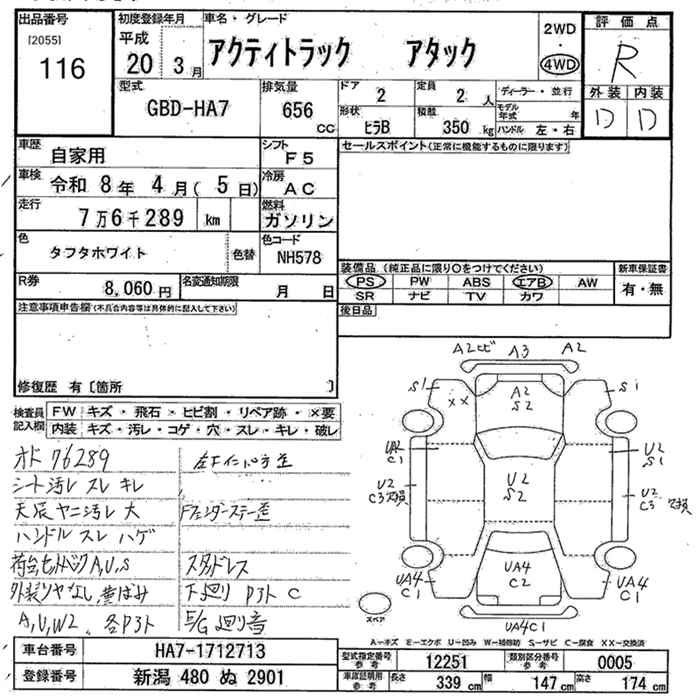 出品番号 初度登録年月 車名・グレード 2WD 評価点
[2055] 平成 アクティトラック アタック ・ R
116 20 3月 4WD
型式 排気量 ドア 2 定員 2人 ディーラー・並行 外装 内装
GBD-HA7 656cc 形状 ヒラB 積載 350kg モデル年式 年 D D
ハンドル 左・右
車歴 自家用 シフト F5 セールスポイント(正常に機能するものに限ります)
車検 令和 8年 4月(5日) 冷房 AC
走行 7万6千289 km 燃料 ガソリン
色 タフタホワイト 色替 色コード NH578
装備品(純正品に限り○をつけてください) 新車保証書
R券 8,060円 名変通知期限 月 日 PS PW ABS エアB AW 有・無
SR ナビ TV カワ
注意事項申告欄(不具合内容等は具体的に記入して下さい) 後日品
修復歴 有〔箇所 〕
検査員記入欄 FW キズ・飛石・ヒビ割・リペア跡・×要
内装 キズ・汚レ・コゲ・穴・スレ・キレ・破レ
A2ヒビ A3 A2
S1 XX A2 S2 S1
UA2 C1 U2 S1
U2 C3交換 U2 S2 U2 C3交換
UA4 C1 UA4 C2 UA4 C1
UA4C1
スペア
オド 76289
シート汚レ スレ キレ
天張ヤニ汚レ 大 Fフェンダーステー歪
ハンドル スレ ハゲ
荷台セットバック A,U,S スタッドレス
外装ツヤなし、黄ばみ 下廻り Pサト C
A,U,W2、各Pサト E/G廻り音
A-キズ E-エクボ U-凹み W-補修跡 S-サビ C-腐食 XX-交換済
車台番号 HA7-1712713 型式指定番号 参考 12251 類別区分番号 参考 0005
登録番号 新潟 480 ぬ 2901 車庫証明用 参考 長さ 339cm 幅 147cm 高さ 174cm